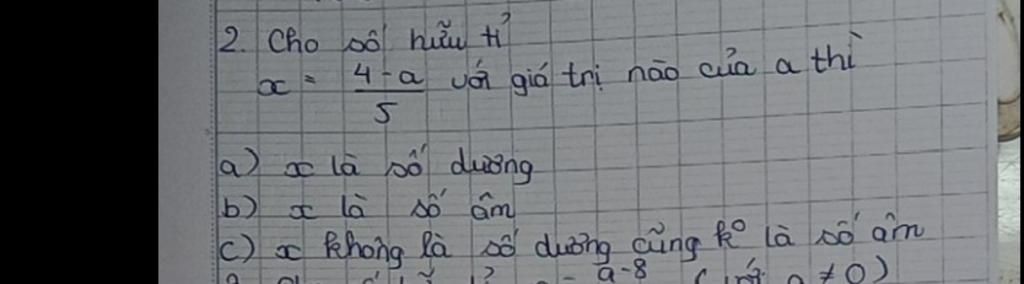 2. Cho số hữu tỉ
x = 4-a/5 với giá trị nào của a thì
a) x là số dương
b) x là số âm
c) x không là số dương cũng k° là số âm
a-8 ( với a ≠ 0)